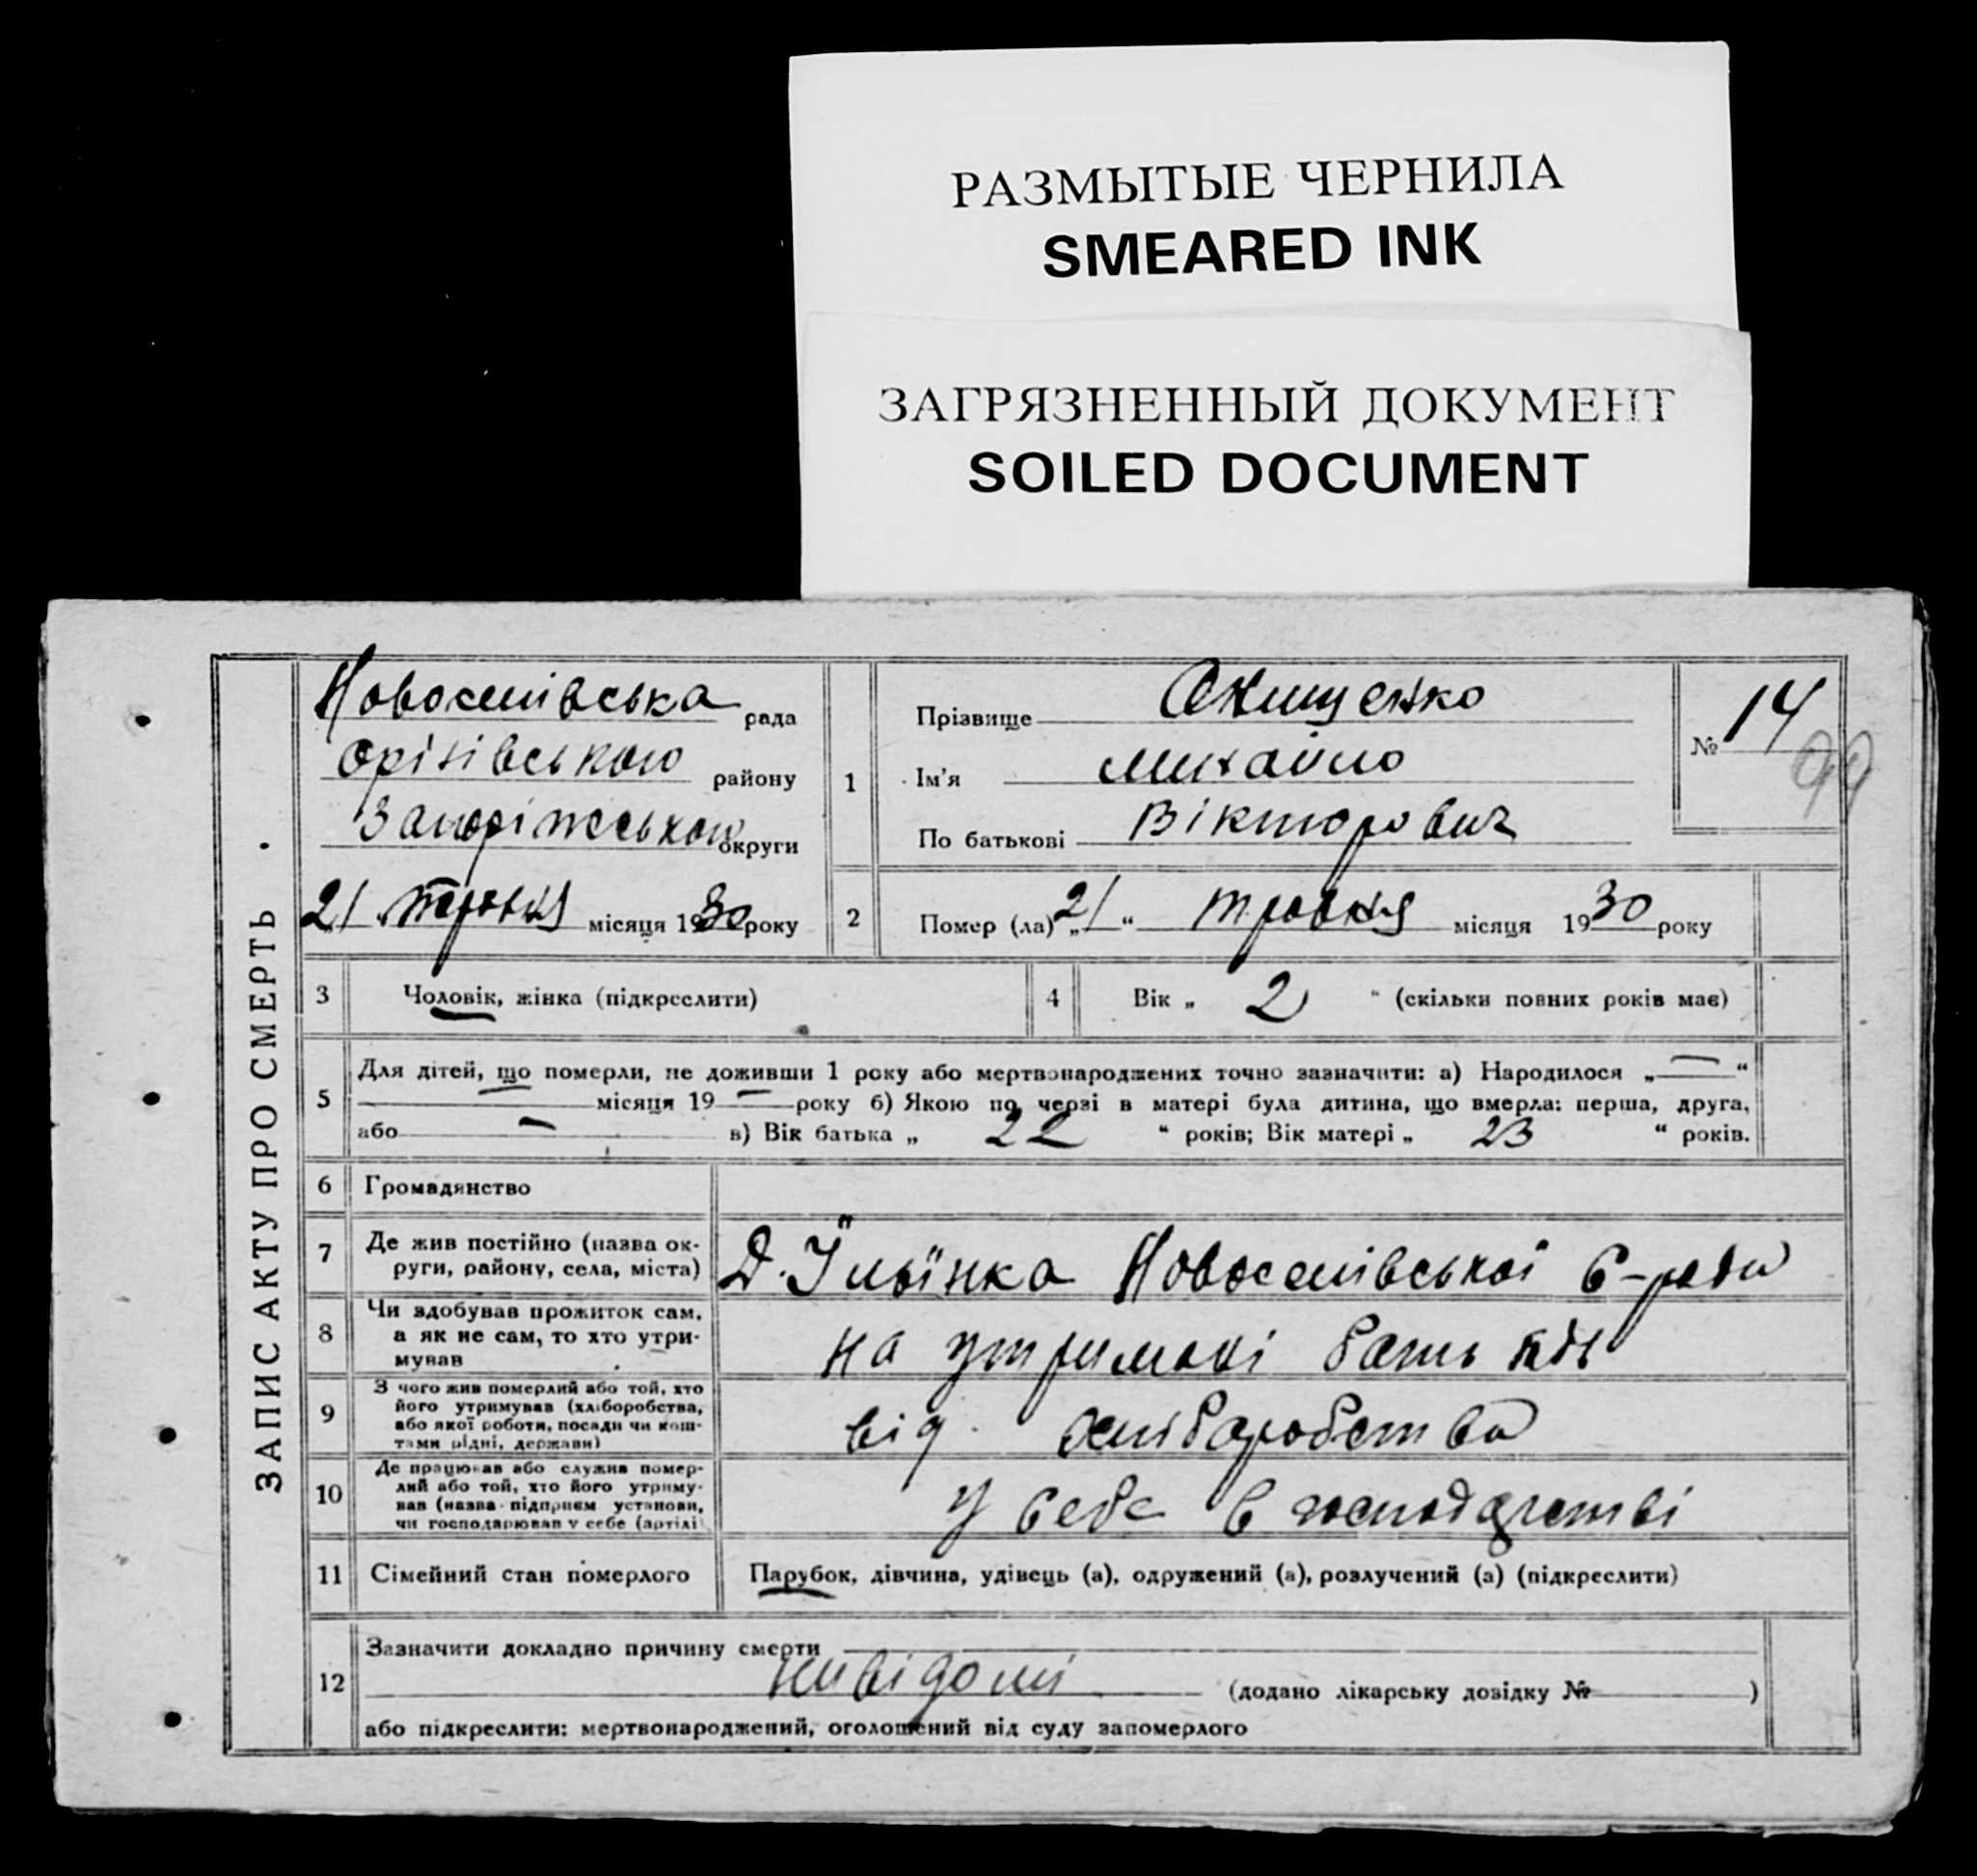 РАЗМЫТЫЕ ЧЕРНИЛА
SMEARED INK
ЗАГРЯЗНЕННЫЙ ДОКУМЕНТ
SOILED DOCUMENT
ЗАПИС АКТУ ПРО СМЕРТЬ.
рада
району
Запоріжською округи
21 травня місяця 1930 року
1
Прізвище Онищенко
Ім'я Михайло
По батькові Вікторович
№ 14
99
2 Помер (ла) „21“ травня місяця 1930 року
3 Чоловік, жінка (підкреслити)
4 Вік „ 2 “ (скільки повних років має)
5 Для дітей, що померли, не доживши 1 року або мертвонароджених точно зазначити: а) Народилося „—“
місяця 19 — року б) Якою по черзі в матері була дитина, що вмерла: перша, друга,
або — в) Вік батька „ 22 “ років; Вік матері „ 23 “ років.
6 Громадянство
7 Де жив постійно (назва ок-
руги, району, села, міста)
Д. Їльїнка Новоселівської с-ради
8 Чи здобував прожиток сам,
а як не сам, то хто утри-
мував
на утримані батьків
9 З чого жив померлий або той, хто
його утримував (хліборобства,
або якої роботи, посади чи кош-
тами рідні, держави)
від хліборобства
10 Де працював або служив помер-
лий або той, хто його утриму-
вав (назва підприєм установи,
чи господарював у себе (артілі)
у себе в господарстві
11 Сімейний стан померлого
Парубок, дівчина, удівець (а), одружений (а), розлучений (а) (підкреслити)
12 Зазначити докладно причину смерти
(додано лікарську довідку № )
або підкреслити: мертвонароджений, оголошений від суду запомерлого